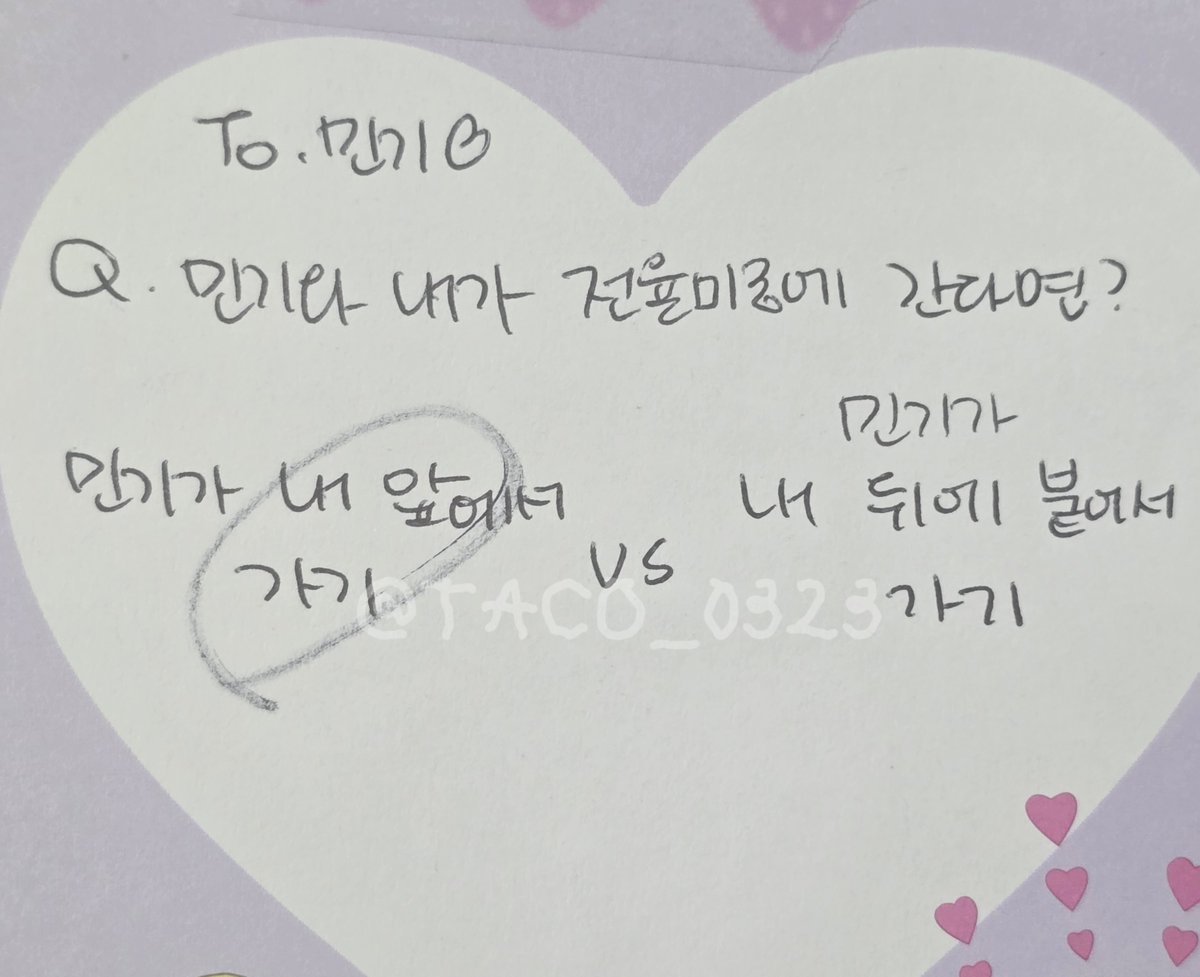 To. 민기♡
Q. 민기와 내가 전율미궁에 간다면?
민기가 내 앞에서
가기
vs
민기가
내 뒤에 붙어서
가기
@TACO_0323